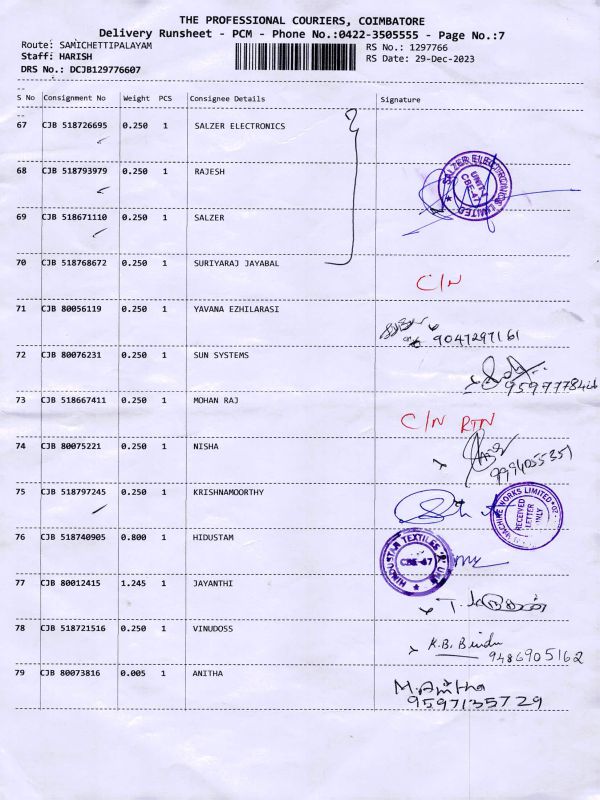 THE PROFESSIONAL COURIERS, COIMBATORE
Delivery Runsheet - PCM - Phone No.:0422-3505555 - Page No.:7
Route: SAMICHETTIPALAYAM RS No.: 1297766
Staff: HARISH RS Date: 29-Dec-2023
DRS No.: DCJB129776607
S No Consignment No Weight PCS Consignee Details Signature
67 CJB 518726695 0.250 1 SALZER ELECTRONICS
68 CJB 518793979 0.250 1 RAJESH
SALZER ELECTRONICS LIMITED
UNIT-1
CBE-47
69 CJB 518671110 0.250 1 SALZER
70 CJB 518768672 0.250 1 SURIYARAJ JAYABAL
C/N
71 CJB 80056119 0.250 1 YAVANA EZHILARASI
9047297161
72 CJB 80076231 0.250 1 SUN SYSTEMS
73 CJB 518667411 0.250 1 MOHAN RAJ
C/N RTN
74 CJB 80075221 0.250 1 NISHA
9994055351
75 CJB 518797245 0.250 1 KRISHNAMOORTHY
MACHINE WORKS LIMITED
RECEIVED
LETTER
ONLY
76 CJB 518740905 0.800 1 HIDUSTAM
HINDUSTAN TEXTILES
CBE-47
77 CJB 80012415 1.245 1 JAYANTHI
78 CJB 518721516 0.250 1 VINUDOSS
K.B. Bindu
9486905162
79 CJB 80073816 0.005 1 ANITHA
M. Anitha
9597135729